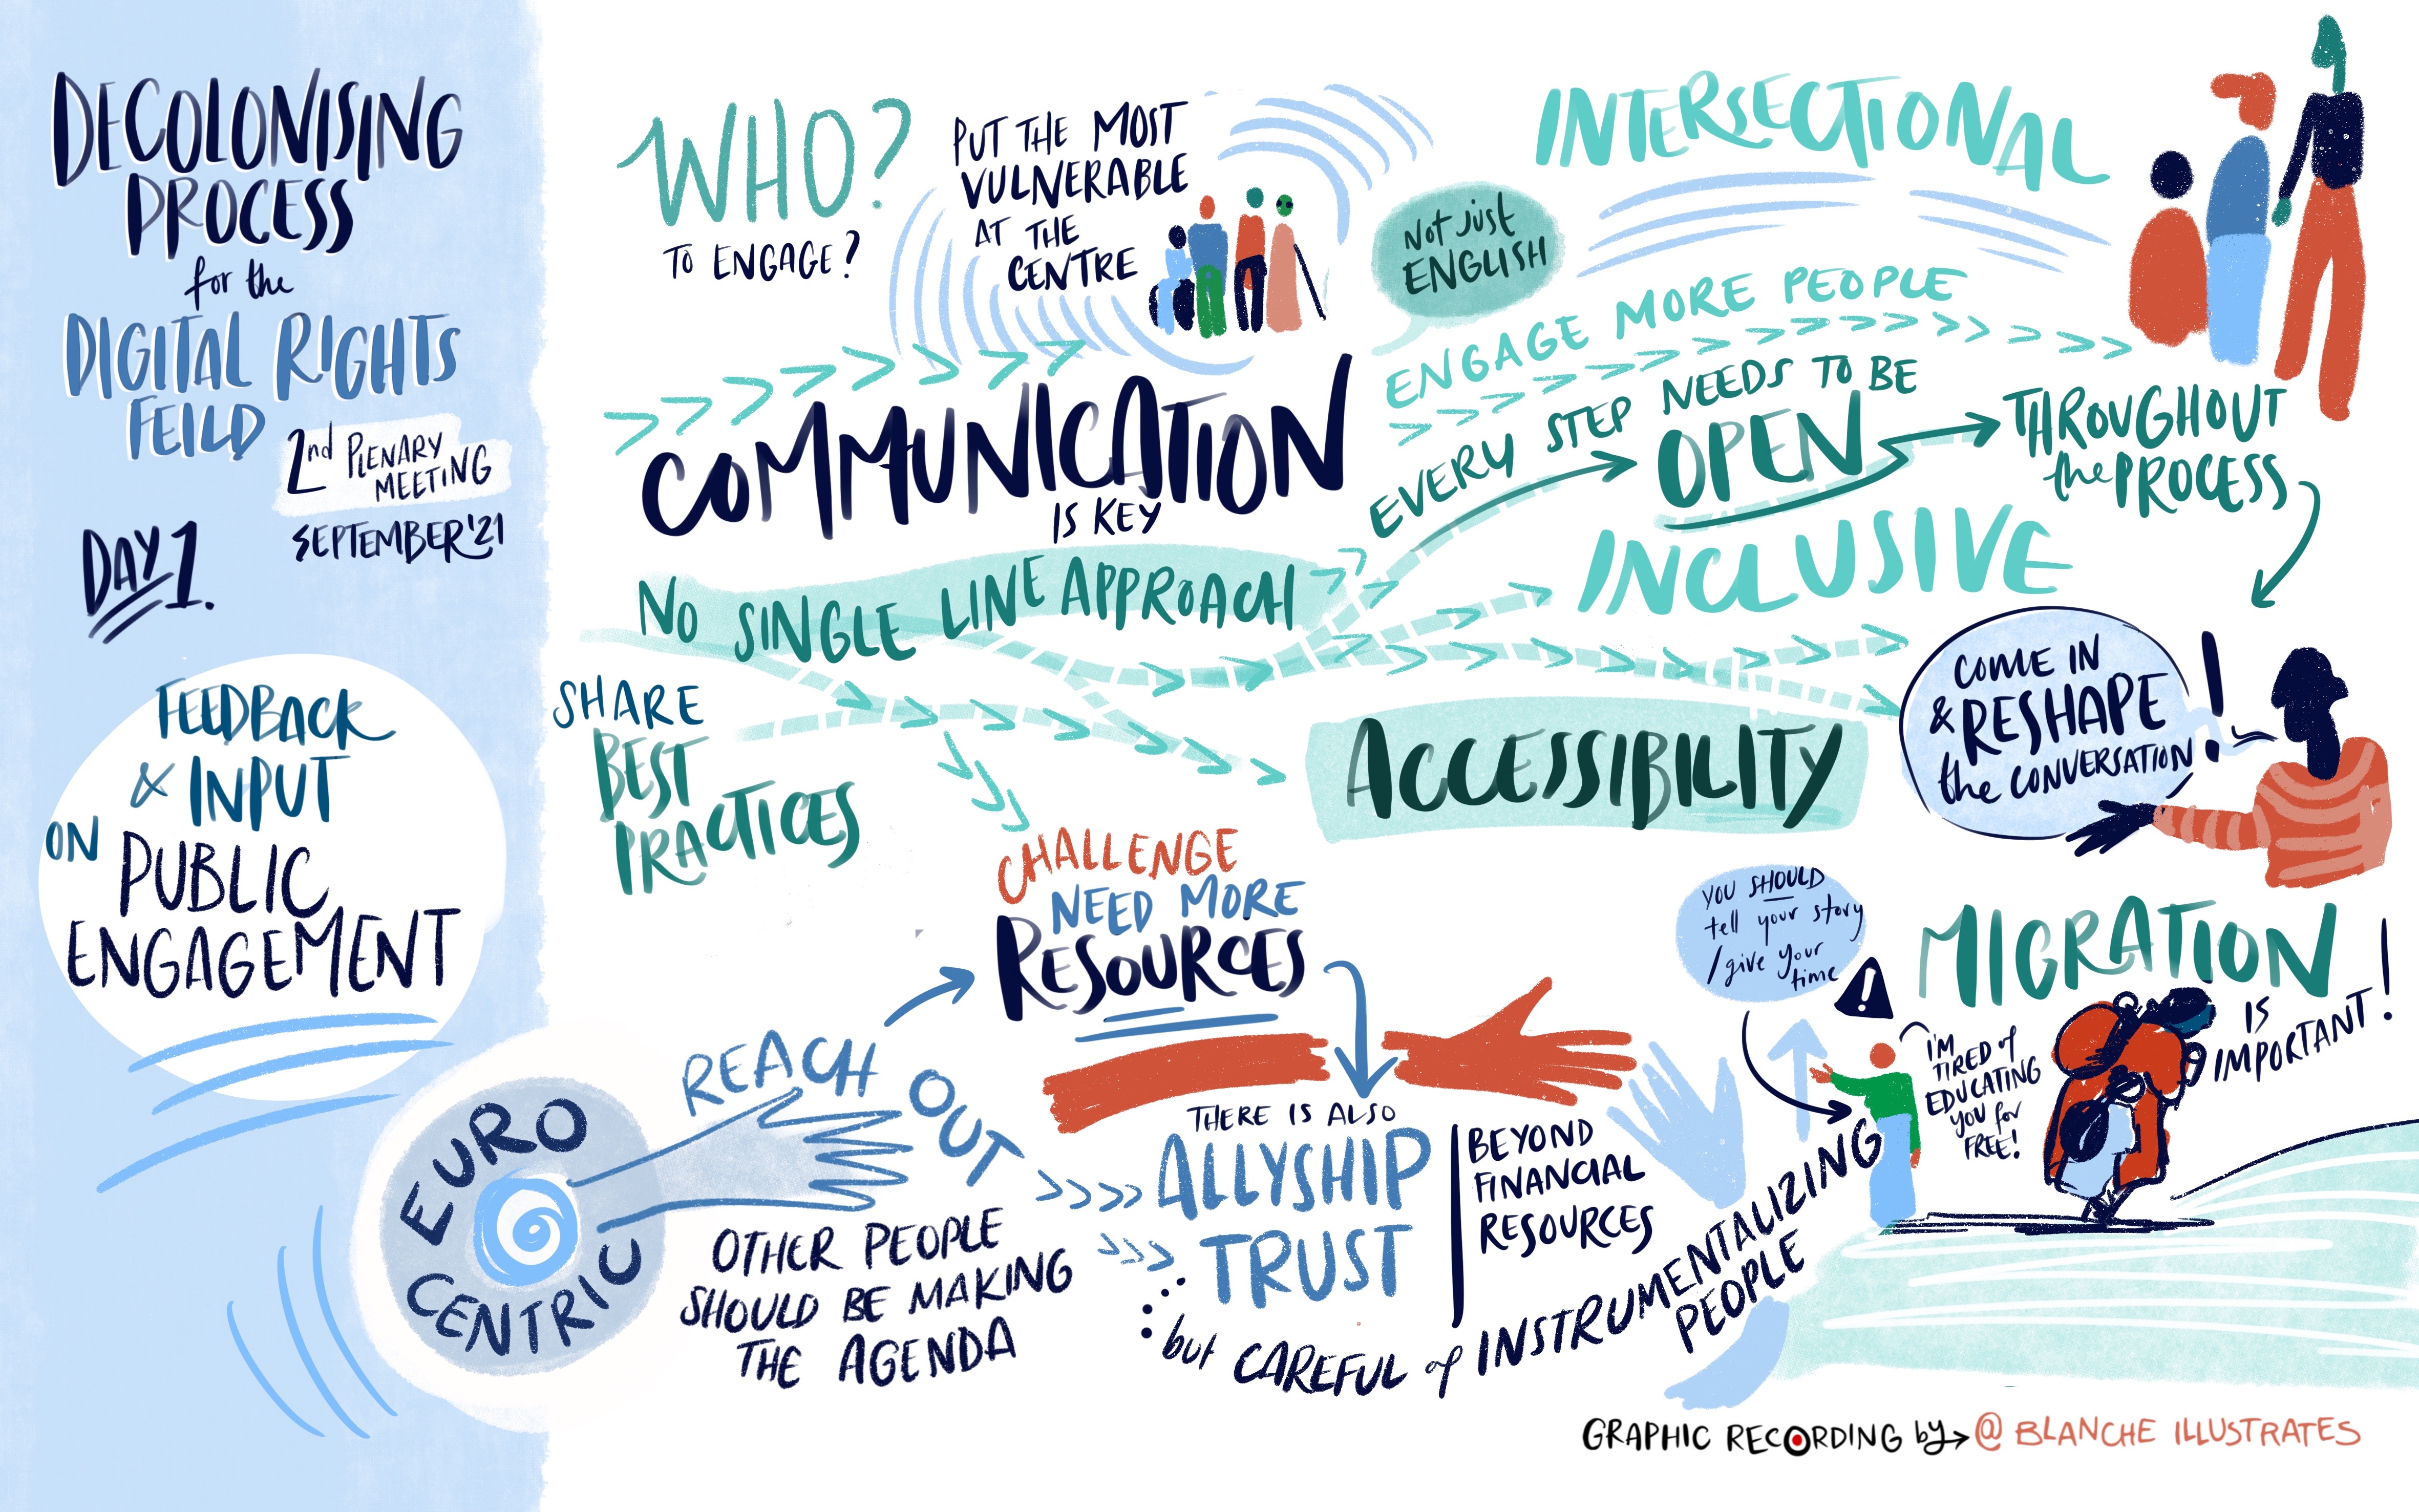 DECOLONISING
PROCESS
for the
DIGITAL RIGHTS
FEILD
2nd PLENARY
MEETING
SEPTEMBER '21
DAY 1.
FEEDBACK
& INPUT
ON PUBLIC
ENGAGEMENT
WHO?
TO ENGAGE?
PUT THE MOST
VULNERABLE
AT THE
CENTRE
Not just
ENGLISH
INTERSECTIONAL
ENGAGE MORE PEOPLE
COMMUNICATION
IS KEY
EVERY STEP NEEDS TO BE
OPEN
THROUGHOUT
the PROCESS
NO SINGLE LINE APPROACH
INCLUSIVE
SHARE
BEST
PRACTICES
ACCESSIBILITY
COME IN
& RESHAPE
the CONVERSATION!
CHALLENGE
NEED MORE
RESOURCES
EURO
CENTRIC
REACH OUT
OTHER PEOPLE
SHOULD BE MAKING
THE AGENDA
THERE IS ALSO
ALLYSHIP
TRUST
BEYOND
FINANCIAL
RESOURCES
but CAREFUL of INSTRUMENTALIZING
PEOPLE
YOU SHOULD
tell your story
/give your
time
!
I'M
TIRED of
EDUCATING
YOU for
FREE!
MIGRATION
IS
IMPORTANT!
GRAPHIC RECORDING by @ BLANCHE ILLUSTRATES